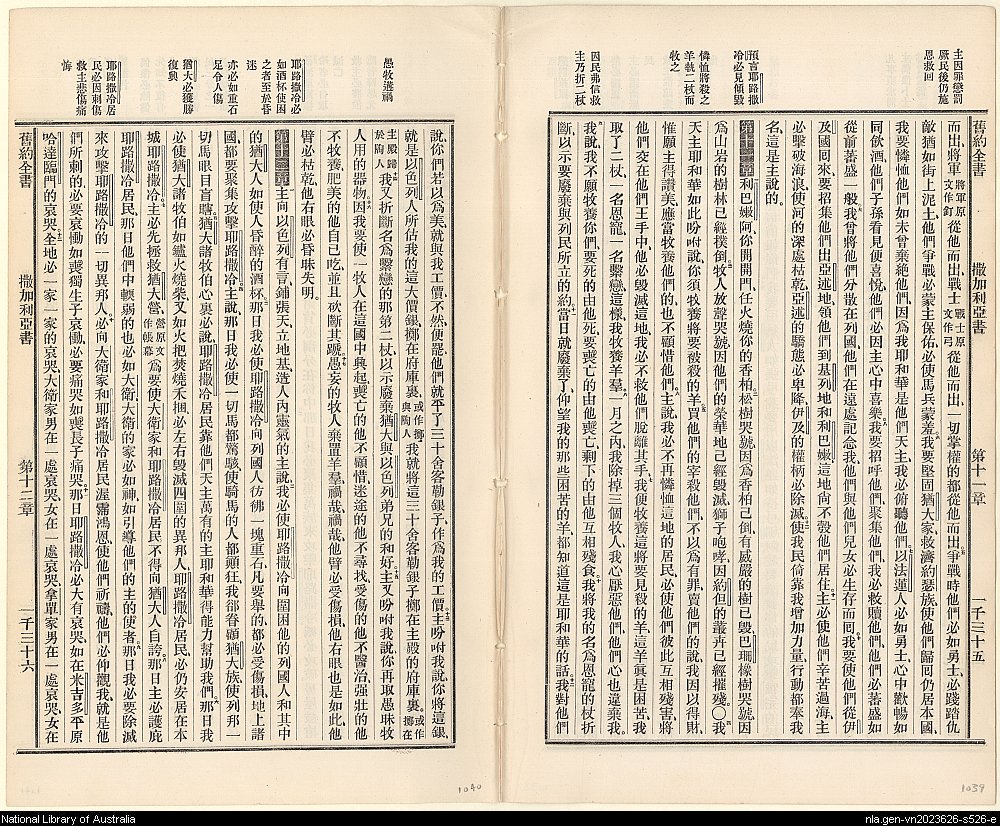 主因罪懲罰
厥民後仍施
恩救回
預言耶路撒
冷必見傾毀
憐恤將殺之
羊執二杖而
牧之
因民弗信救
主乃折二杖
舊約全書 撒加利亞書 第十一章 一千三十五
而出、將軍將軍原文作釘從他而出、戰士戰士原文作弓從他而出、一切掌權的都從他而出、爭戰時他們必如勇士、必踐踏仇
敵猶如街上泥土、他們爭戰必蒙主保佑、必使馬兵蒙羞、我要堅固猶大家、救濟約瑟族、使他們歸回仍居本國、
我要憐恤他們、如未曾棄絕他們、因為我耶和華是他們天主、我必俯聽他們、以法蓮人必如勇士、心中歡暢如
同飲酒、他們子孫看見便喜悅、他們必因主心中喜樂、我要招呼他們、聚集他們、我必救贖他們、他們必蕃盛如
從前蕃盛一般、我曾將他們分散在列國、他們在遠處記念我、他們與他們兒女必生存而回、我要使他們從伊
及國回來、要招集他們出亞述地、領他們到基列地和利巴嫩、這地尚不彀他們居住、主必使他們辛苦過海、主
必擊破海浪、使河的深處枯乾、亞述的驕態必卑降、伊及的權柄必除滅、使我民倚靠我增加力量、行動都奉我
名、這是主說的、
第十一章利巴嫩阿、你開開門、任火燒你的香柏、松樹哭號、因為香柏已倒、有威嚴的樹已毀、巴珊橡樹哭號、因
為山岩的樹林已經撲倒、牧人放聲哭號、因他們的榮華地已經毀滅、獅子咆哮、因約但的叢卉已經摧殘、〇我
天主耶和華如此吩咐說、你須牧養將要被殺的羊、買他們的宰殺他們、不以為有罪、賣他們的說、我因以得財、
惟願主得讚美、應當牧養他們的、也不顧惜他們、主說、我必不再憐恤這地的居民、必使他們彼此互相殘害、將
他們交在他們王手中、他必毀滅這地、我必不救他們脫離其手、我便牧養這將要見殺的羊、這羊真是困苦、我
取了二杖、一名恩寵、一名繫戀、這樣我牧養羊羣、一月之內、我除掉三個牧人、我心厭惡他們、他們心也違棄我、
我說、我不願牧養你們、要死的由他死、要喪亡的由他喪亡、剩下的由他互相殘食、我將我的名為恩寵的杖折
斷、以示要廢棄與列民所立的約、當日就廢棄了、仰望我的那些困苦的羊、都知道這是耶和華的話、我對他們
1039
愚牧遘禍
耶路撒冷必
如酒杯使困
之者至於昏
迷
亦必如重石
足令人傷
猶大必獲勝
復興
耶路撒冷居
民必因刺傷
救主悲傷痛
悔
說、你們若以為美、就與我工價、不然便罷、他們就平了三十舍客勒銀子、作為我的工價、主吩咐我說、你將這銀、
就是以色列人所估我的這大價銀、擲在府庫裏、或作擲與陶人我就將這三十舍客勒銀子擲在主殿的府庫裏、或作擲在
主殿歸於陶人我又折斷名為繫戀的那第二杖、以示廢棄猶大與以色列弟兄的和好、主又吩咐我說、你再取愚昧牧
人用的器物、因我要使一牧人在這國中興起、喪亡的他不顧惜、迷途的他不尋找、受傷的他不醫治、強壯的他
不牧養、肥美的他自己吃、並且欲斷其蹏、愚妄的牧人棄置羊羣、禍哉禍哉、他臂必受傷損、他右眼也是如此、他
臂必枯乾、他右眼必昏昧失明、
第十二章主向以色列有言、鋪張天、立地基、造人內靈氣的主說、我必使耶路撒冷向圍困他的列國人、和其中
的猶大人、如使人昏醉的酒杯、那日我必使耶路撒冷向列國人彷彿一塊重石、凡要舉的都必受傷損、地上諸
國、都要聚集攻擊耶路撒冷、主說、那日我必使一切馬都驚駭、使騎馬的人都顛狂、我卻眷顧猶大族、使列邦一
切馬眼目盲瞎、猶大諸牧伯心裏必說、耶路撒冷居民靠他們天主萬有的主耶和華得能力幫助我們、那日我
必使猶大諸牧伯如爐火燒柴、又如火把焚燒禾捆、必左右毀滅四圍的異邦人、耶路撒冷居民必仍安居在本
城耶路撒冷、主必先拯救猶大營、營原文作帳幕為要使大衛家和耶路撒冷居民不得向猶大人自誇、那日主必護庇
耶路撒冷居民、那日他們中輭弱的也必如大衛、大衛的家必如神、如引導他們的主的使者、那日我必要除滅
來攻擊耶路撒冷的一切異邦人、必向大衛家和耶路撒冷居民渥霈鴻恩、使他們祈禱、他們必仰觀我、就是他
們所刺的、必要哀慟如喪獨生子、哀慟必要痛哭如喪長子痛哭、那日耶路撒冷必大有哀哭、如在米吉多平原
哈達臨門的哀哭、全地必一家一家的哀哭、大衛家男在一處哀哭、女在一處哀哭、拿單家男在一處哀哭、女在
舊約全書 撒加利亞書 第十二章 一千三十六
1040
National Library of Australia
nla.gen-vn2023626-s526-e